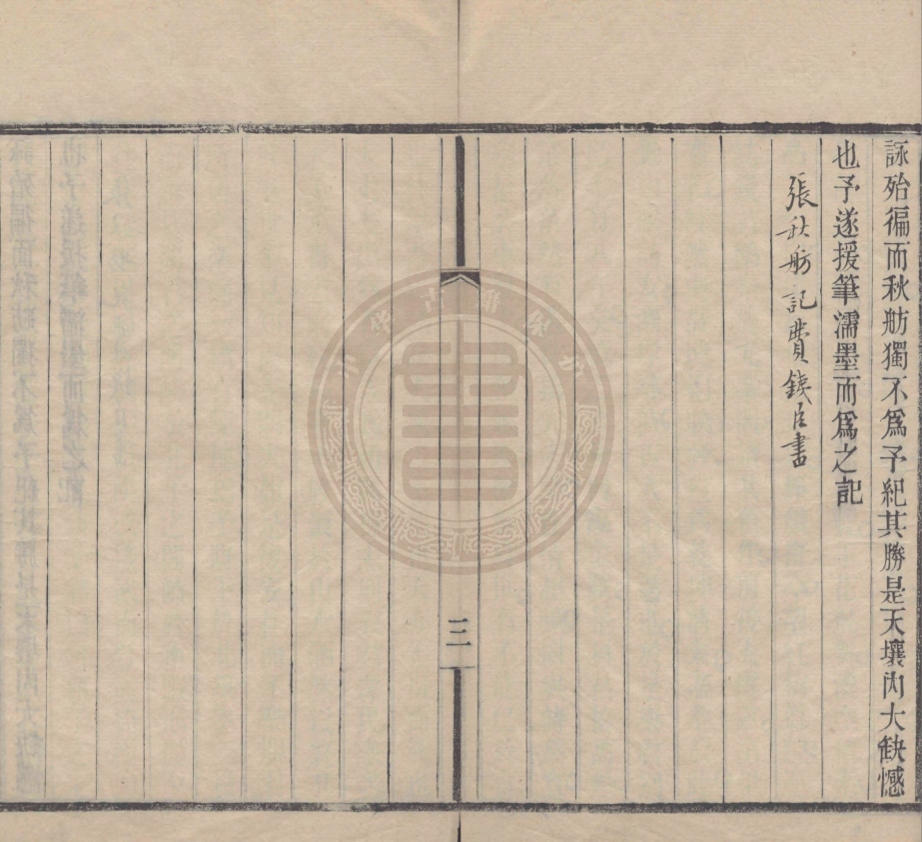 詠殆徧而秋舫獨不爲予紀其勝是天壤內大缺憾
也予遂援筆濡墨而爲之記
張秋舫記費鐵臣書
三